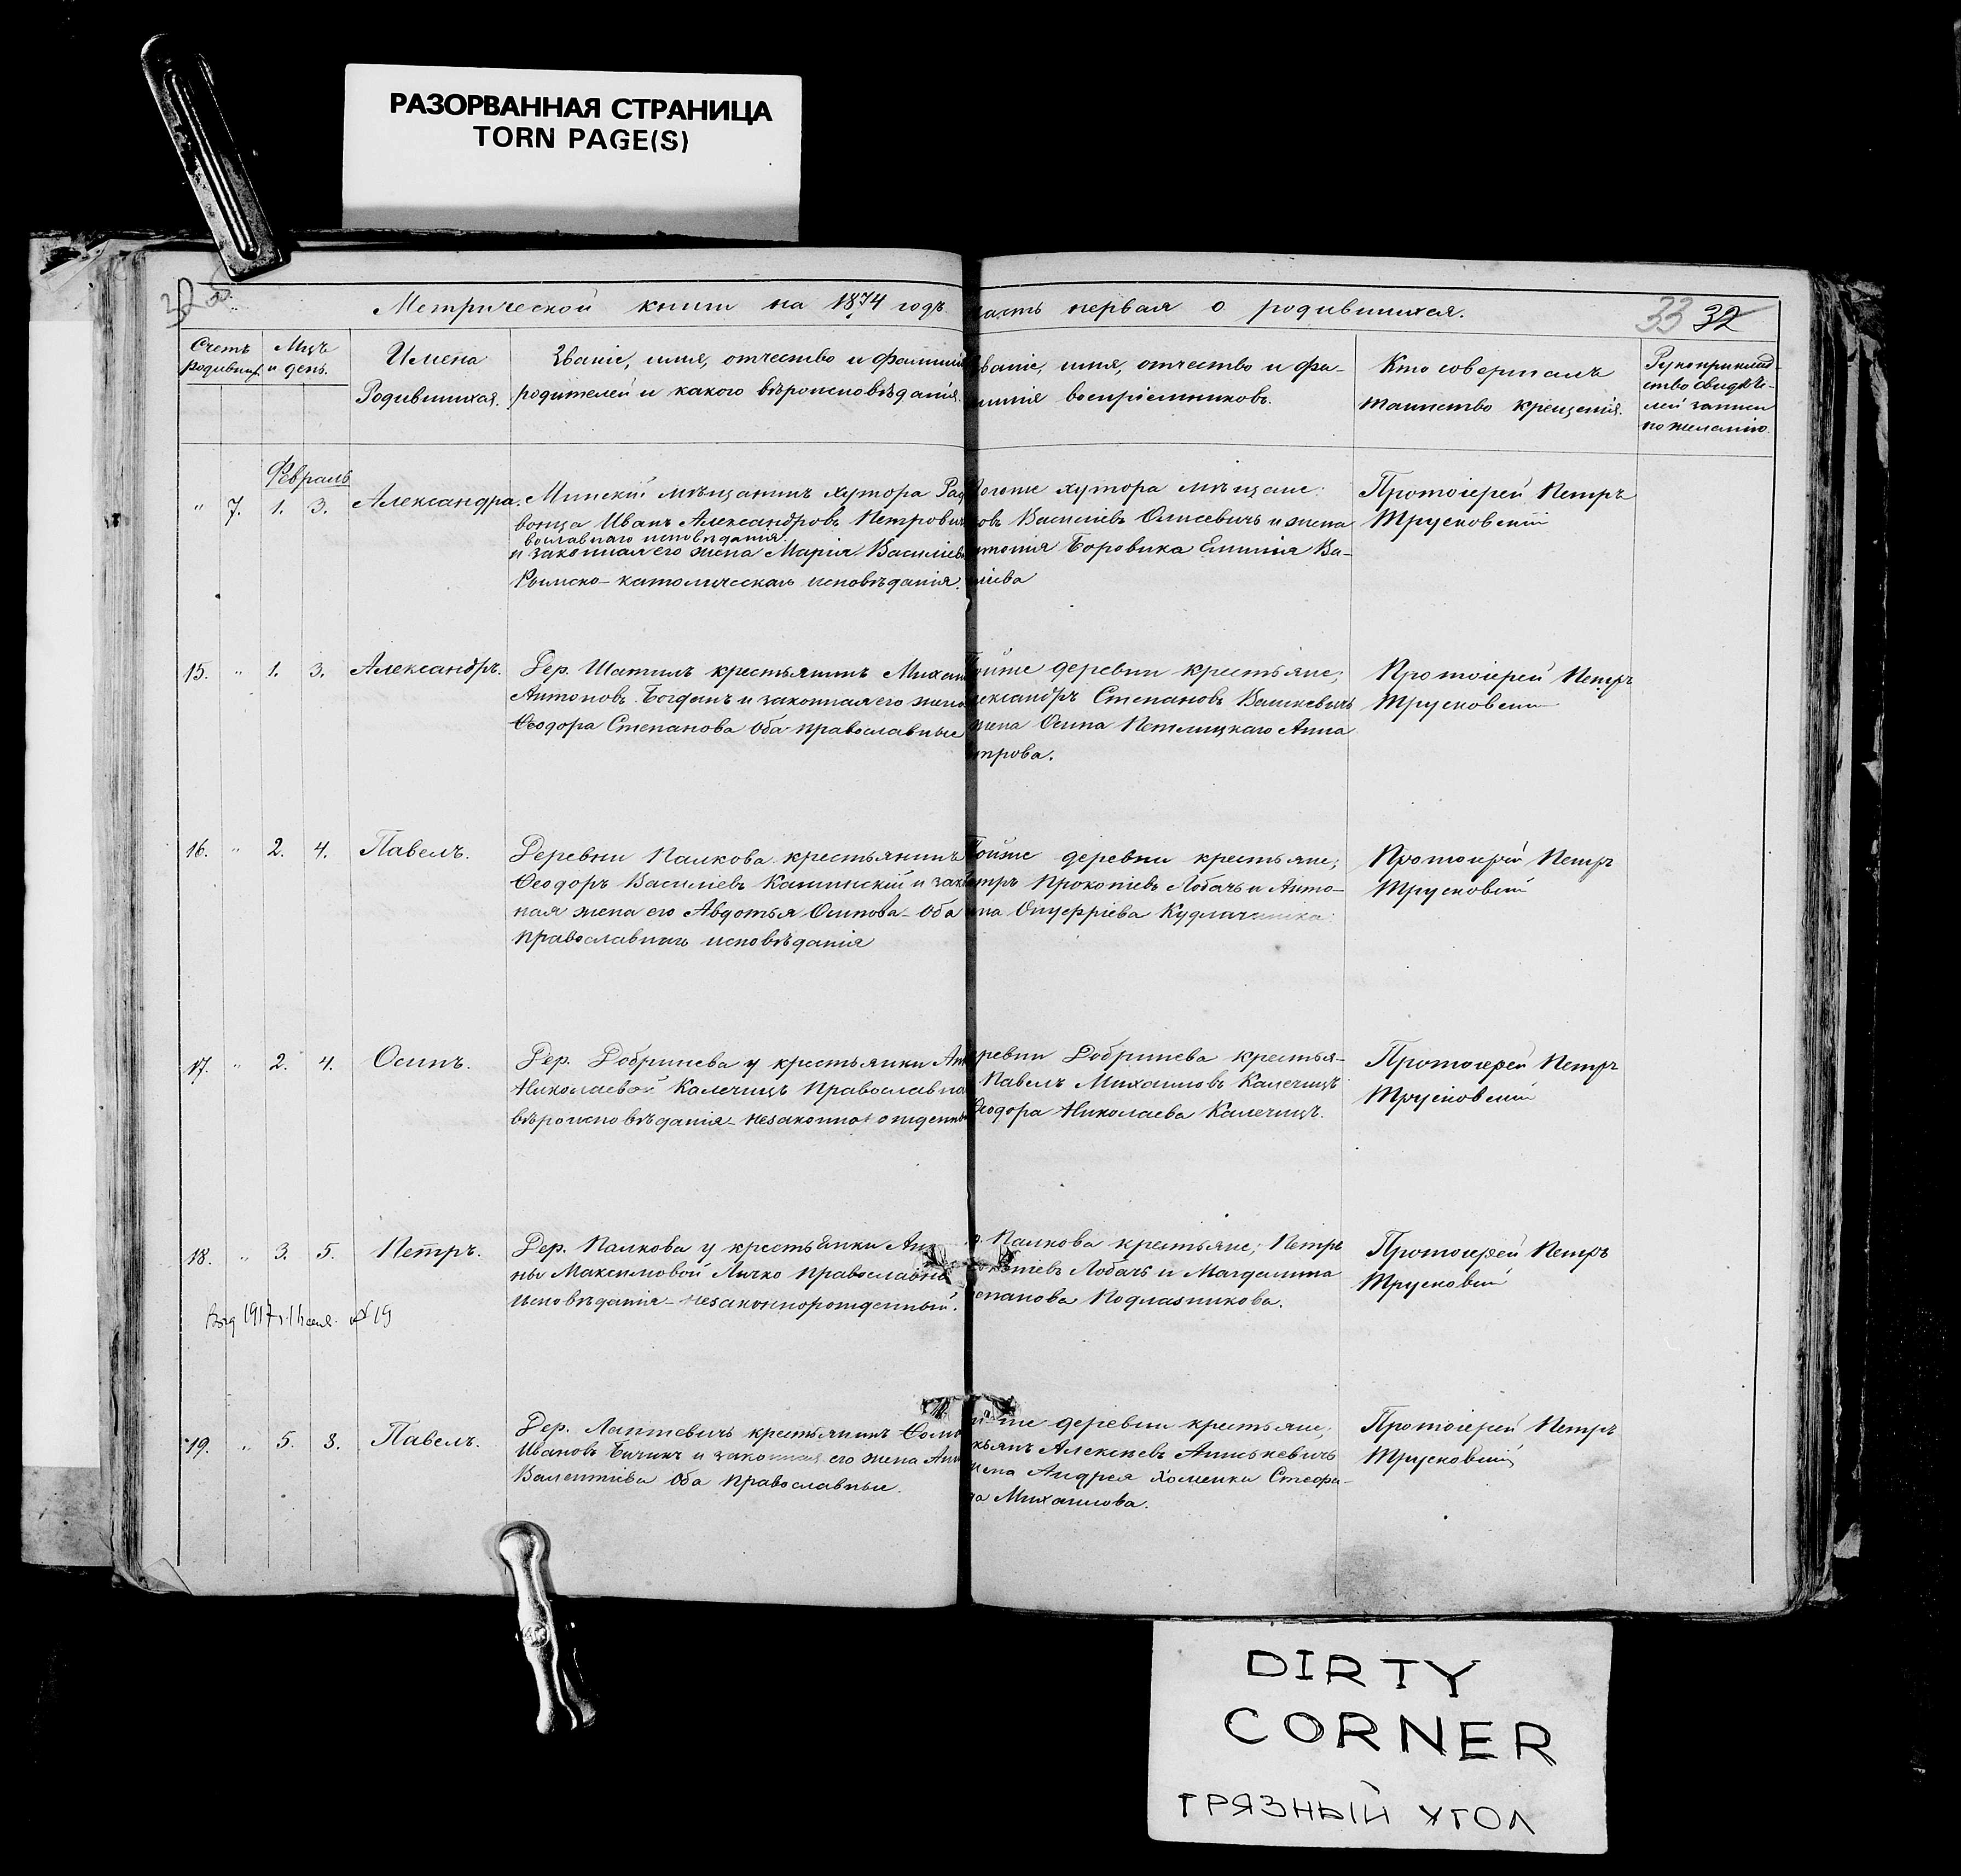 РАЗОРВАННАЯ СТРАНИЦА
TORN PAGE(S)
Метрической книги на 1874 годъ
часть первая о родившихся.
33 32
Счетъ родивших.
Мцъ и день.
Имена
Родившихся.
Званіе, имя, отчество и фамилія
родителей и какого вѣроисповѣданія.
Званіе, имя, отчество и фа-
милія воспріемниковъ.
Кто совершалъ
таинство крещенія.
Рукоприклад-
ство свидѣте-
лей записи
по желанію.
Февраль
" 7. 1. 3. Александра.
Минскій мѣщанинъ хутора
Иванъ Александровъ Петрович
вославнаго исповѣданія
и законная его жена Марія Василіев
Римско-католическаго исповѣданія.
тогоже хутора мѣщане:
овъ Василіевъ Олисевичъ и жена
Боровика Емилія Ва-
силіева
Протоіерей Петръ
Трусковскій
15. " 1. 3. Александръ.
Дер. Шатилъ крестьянинъ Михаил
Антоновъ Богданъ и законная его жена
Ѳеодора Степанова оба православные
Тойже деревни крестьяне;
лександръ Степановъ Вашкевичъ
жена Осипа Петлицкаго Анна
етрова.
Протоіерей Петръ
Трусковскій
16. " 2. 4. Павелъ.
Деревни Палкова крестьянинъ
Ѳеодоръ Василіевъ Каминскій и зак
ная жена его Авдотья Осипова - оба
православнаго исповѣданія
Тойже деревни крестьяне;
етръ Прокопіевъ Лобачъ и Анто-
нина Онуфріева
Протоіерей Петръ
Трусковскій
17. " 2. 4. Осипъ.
Дер. Добринева у крестьянки Ан
Николаевой Калечицъ православна
вѣроисповѣданія - незаконнорожденны
ревни Добринева крестья-
Павелъ Михаиловъ Калечицъ
Ѳеодора Николаева Калечицъ.
Протоіерей Петръ
Трусковскій
18. " 3. 5. Петръ.
Дер. Палкова у крестьянки Ан
ны Максимовой Личко православна
исповѣданія - незаконнорожденный.
р. Палкова крестьяне; Петръ
копіевъ Лобачъ и Магдалина
епанова Подлазникова.
Протоіерей Петръ
Трусковскій
1917 г. № 19
19. " 5. 8. Павелъ.
Дер. Лаптевичъ крестьянинъ Ѳома
Ивановъ Бичикъ и законная его жена Анн
Валентіева оба православные.
же деревни крестьяне;
Алексѣевъ Анискевичъ
жена Андрея Хоменки Стефа-
да Михаилова.
Протоіерей Петръ
Трусковскій
DIRTY
CORNER
ГРЯЗНЫЙ УГОЛ